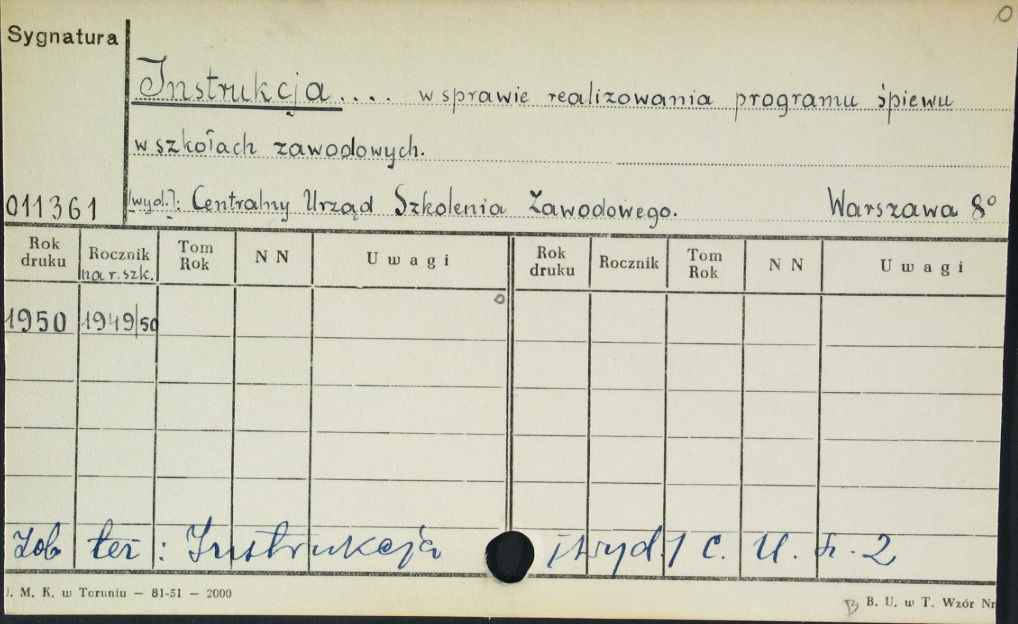 Sygnatura
Instrukcja.... w sprawie realizowania programu śpiewu
w szkołach zawodowych.
011361 [wyd.]: Centralny Urząd Szkolenia Zawodowego. Warszawa 8°
Rok druku Rocznik na r. szk. Tom Rok N N U w a g i Rok druku Rocznik Tom Rok N N U w a g i
1950 1949/50
Zob też : Instrukcja /wyd./ C. U. Sz. Z
J. M. K. w Toruniu — 81-51 — 2000
B. U. w T. Wzór Nr